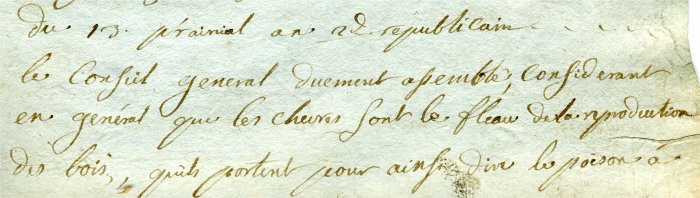 du 13. prairial an 2d. republicain
le Conseil general duement assemblé, Considerant
en général que les chevres sont le fleau de la reproduction
des bois, qu'ils portent pour ainsi dire le poison à